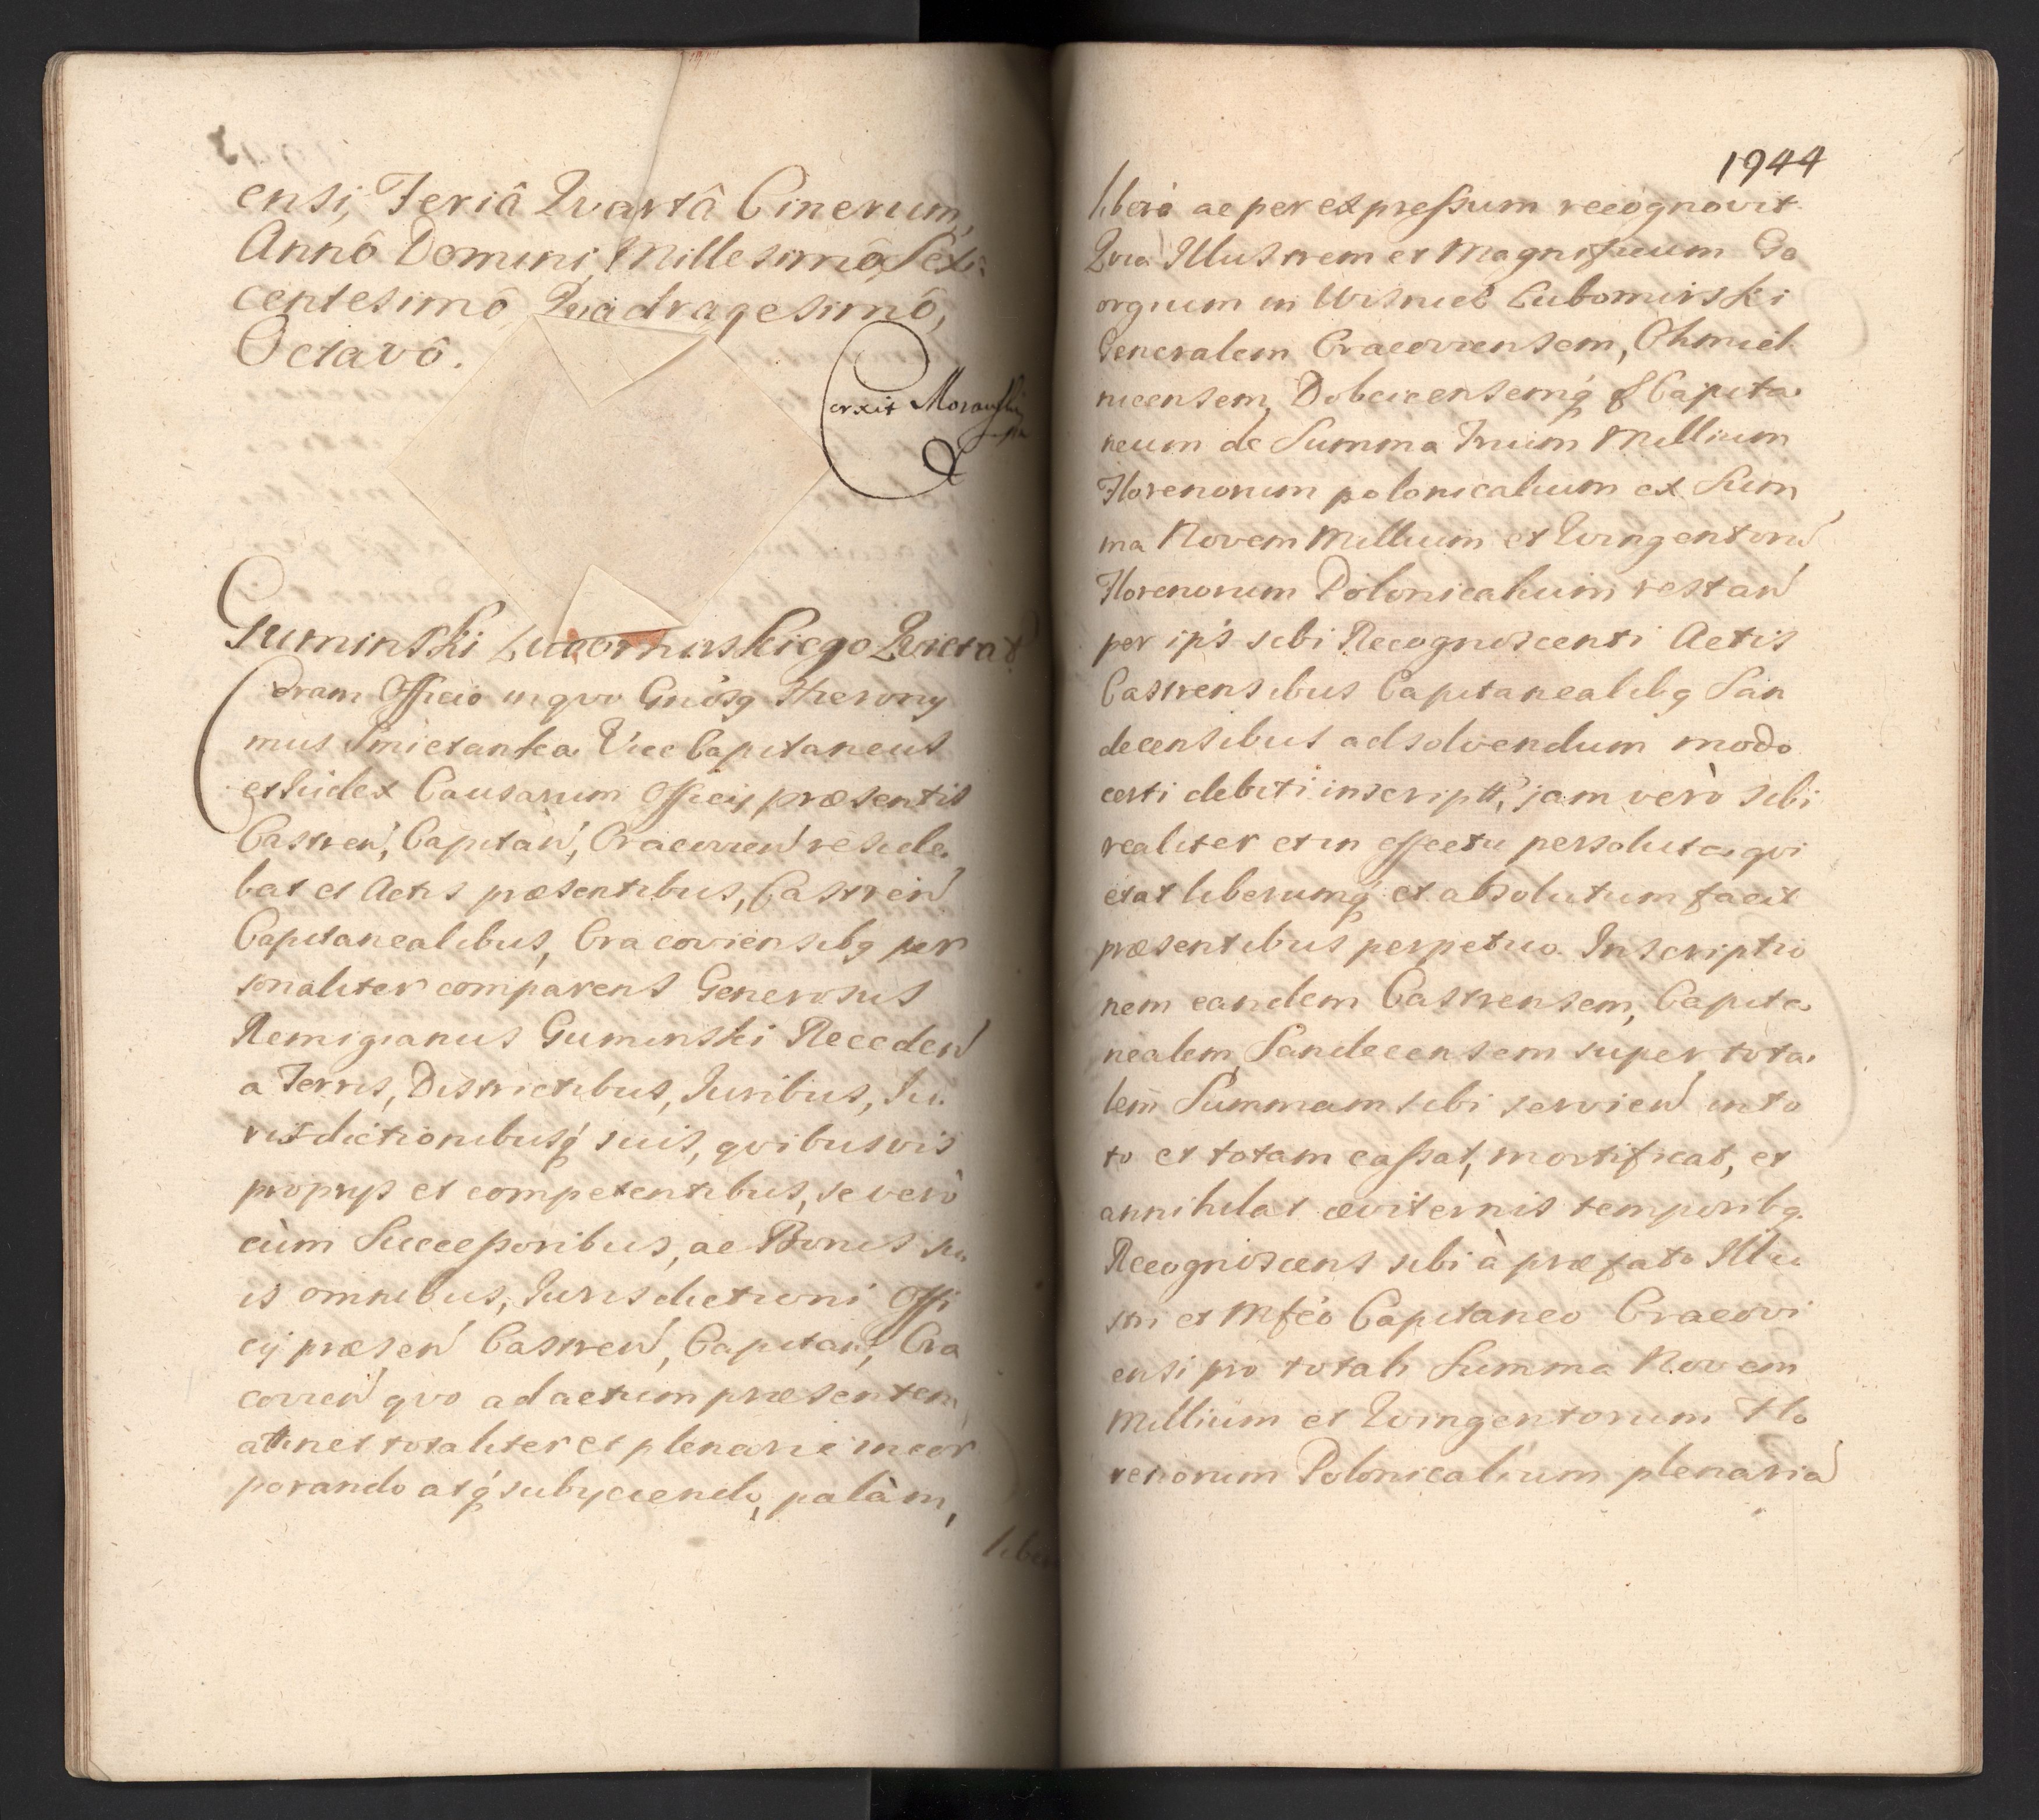 ensi, Feriâ Qvartâ Cinerum,
Annô Domini Millesimô Sex:
centesimô Quadragesimô,
Octavô.
Corxit Morawski
Guminski Lubomirskiego Qvietat
Coram Officio in qvo Gnôsq Hierony
mus Smietanka Vice Capitaneus
et Iudex Causarum Officij præsentis
Castren, Capitan, Cracovien reside
bat et Actis præsentibus, Castren
Capitanealibus, Cracoviensibq per
sonaliter comparens Generosus
Remigianus Guminski Receden
a Terris, Districtibus, Iuribus, Iu
risdictionibusq suis, qvibusvis
proprijs et competentibus, se verò
cùm Successoribus, ac Bonis su
is omnibus, Iurisdictioni Offi
cij præsen Castren, Capitan, Cra
covien qvo ad actum præsentem
attinet totaliter et plenarie incor
porando atq subijciendo, palàm,
libere
1944
liberè ac per expressum recognovit
Qvia Illustrem et Magnificum Ge
orgium in Wisnicz Lubomirski
Generalem Cracoviensem, Chmiel
nicensem, Dobcicensemq & Capita
neum de Summa Trium Millium
Florenorum polonicalium ex Sum
ma Novem Millium et Qvingentoru
Florenorum Polonicalium restan
per ips sibi Recognoscenti Actis
Castrensibus Capitanealibq San
decensibus ad solvendum modo
certi debiti inscriptt, jam verò sibi
realiter et in effectu persoluta qvi
etat liberumq et absolutum facit
præsentibus perpetuo. Inscriptio
nem eandem Castrensem, Capita
nealem Sandecensem super tota
lem Summam sibi servien in to
to et totam cassat, mortificat, et
annihilat æviternis temporibq.
Recognoscens sibi à præfato Illu
stri et Mfcô Capitaneo Cracovi
ensi pro totali Summa Novem
Millium et Qvingentorum Flo
renorum Polonicalium plenaria